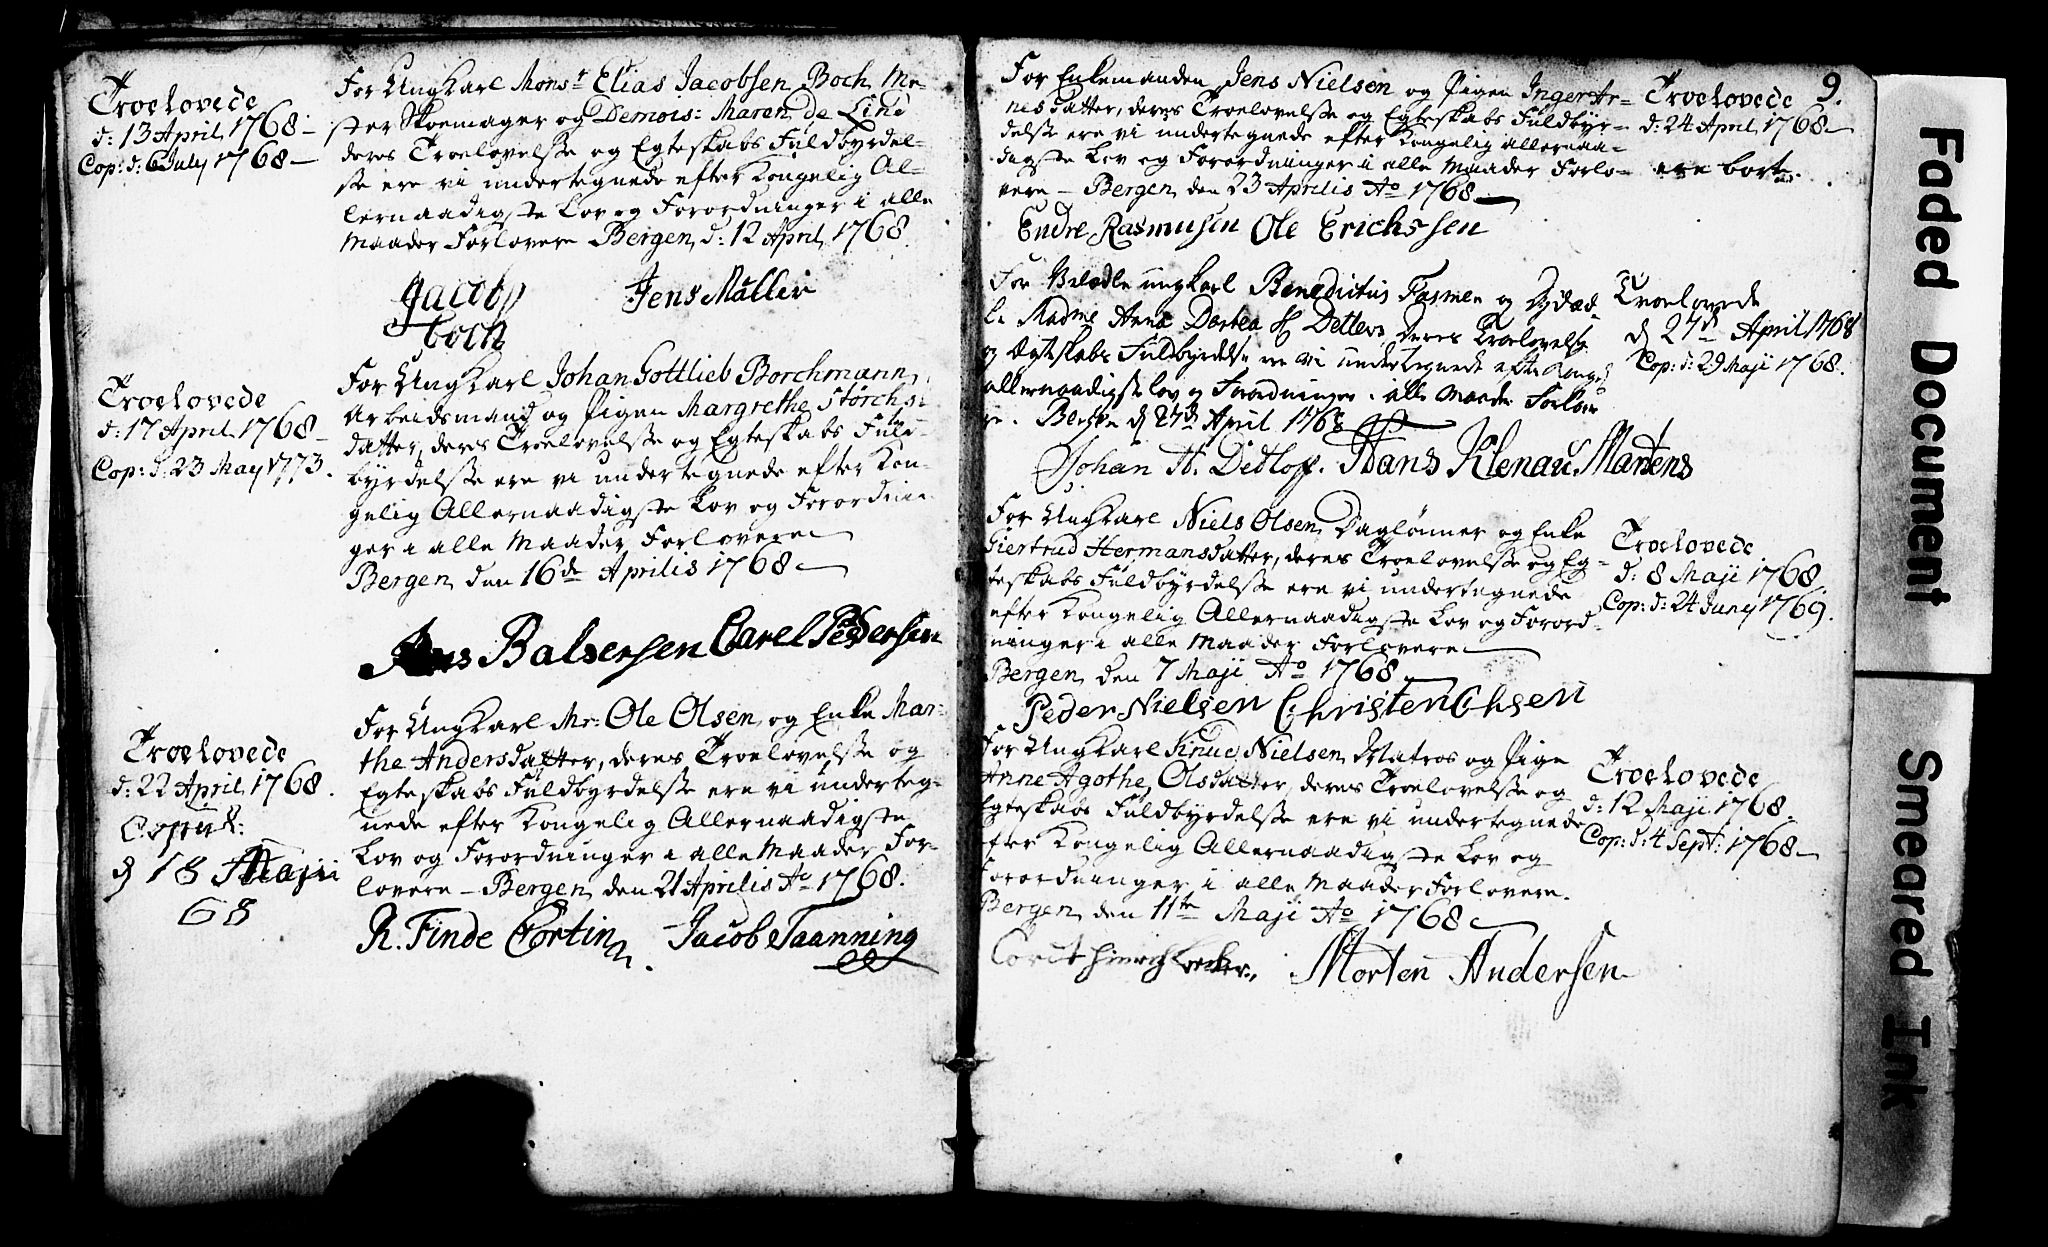 Troelovede
d: 13 April 1768 –
Cop: d: 6 July 1768 –
For Ungkarl Mons.r Elias Jacobsen Boch Me-
ster Skoemager og Demois: Maren de Lind
deres Troelovelsse og Egteskabs Fuldbyrdel-
se ere vi undertegnede efter Kongelig Al-
lernaadigste Lov og Forordninger i alle
Maader Forlovere Bergen d: 12 April 1768.
Jacob Boch
Jens Møller
Troelovede
d: 17 April 1768 –
Cop: d: 23 May 1773.
For Ungkarl Johan Gottlieb Borchmann
Arbeidsmand og Pigen Margrethe Størchs-
datter, deres Troelovelsse og Egteskabs Fuld-
byrdelsse ere vi undertegnede efter Kon-
gelig Allernaadigste Lov og Forordnin-
ger i alle Maader Forlovere
Bergen den 16de Aprilis 1768 –
Balsersen Carel Pedersen
Troelovede
d: 22 April 1768.
Copul:
d 18 Maji
68
For Ungkarl Mr: Ole Olsen og Enke Mar-
the Andersdatter, deres Troelovelsse og
Egteskabs Fuldbyrdelsse ere vi underteg-
nede efter Kongelig Allernaadigste
Lov og Forordninger i alle Maader For-
lovere – Bergen den 21 Aprilis Ao 1768.
R. Finde Cortin. Jacob Taanning
9.
For Enkemanden Jens Nielsen og Pigen Inger Ar-
nesdatter, deres Troelovelsse og Egteskabs Fuldbyr-
delsse ere vi undertegnede efter Kongelig allernaa-
digste Lov og Forordninger i alle Maader Forlo-
vere – Bergen den 23 Aprilis Ao 1768 –
Endre Rasmusen Ole Erichssen
Troelovede
d: 24 April 1768 –
ere borte.
For Velædle ungkarl Benedictus Fasmer og Dydæd-
l. Madme Anna Dortea Detlevs, deres Troelovelse
og Egteskabs Fuldbyrdelse ere vi undertegnede efter Kongl
allernaadigste lov og Forordninger i alle Maader Forlove
re. Bergen d 27de April 1768
Johan H. Ditlof. Hans Klenau Martens
Troelovede
d 27de April 1768
Cop: d: 29 Maji 1768.
For Ungkarl Niels Olsen Daglønner og Enke
Giertrud Hermansdatter, deres Troelovelsse og Eg-
teskabs Fuldbyrdelsse ere vi undertegnede
efter Kongelig Allernaadigste Lov og Forord-
ninger i alle Maader Forlovere
Bergen den 7 Maji Ao 1768
Peder Nielsen Christen Olsen
Troelovede
d: 8 Maji 1768.
Cop: d: 24 Juny 1769.
For Ungkarl Knud Nielsen Matros og Pige
Anne Agothe Olsdatter, deres Troelovelsse og
Egteskabs Fuldbyrdelsse ere vi undertegnede
efter Kongelig Allernaadigste Lov og
Forordninger i alle Maader Forlovere.
Bergen den 11te Maji Ao 1768
Cordt Hinrich Morten Andersen
Troelovede
d: 12 Maji 1768.
Cop: d: 4 Sept: 1768 –
Faded Document
Smeared Ink